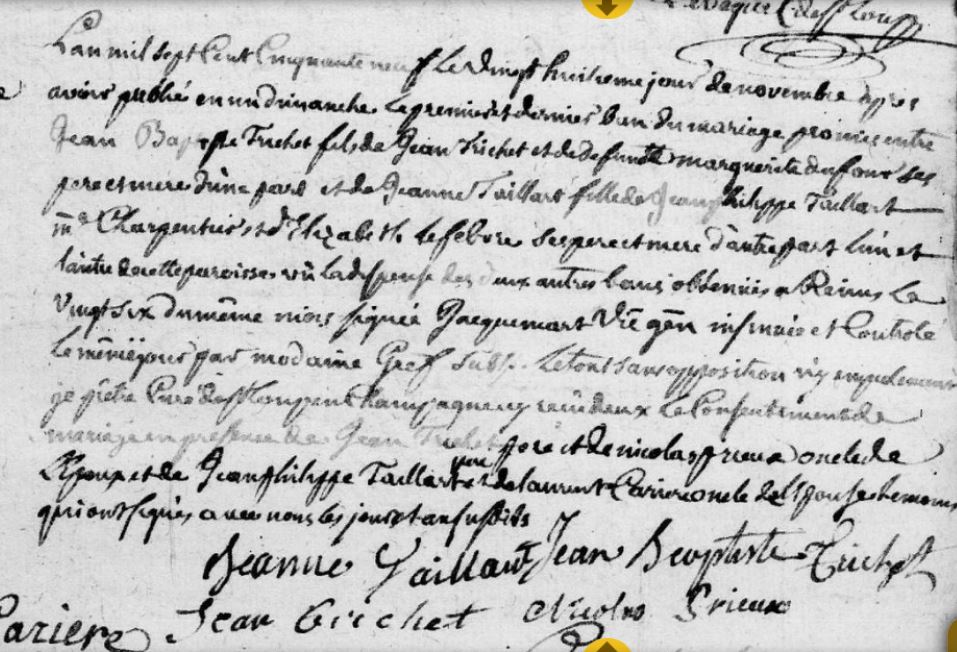 L'an mil sept Cent Cinquante neuf Le vingt huitieme jour de novembre apres
avoir publié en un dimanche le premier et dernier ban du mariage promis entre
Jean Baptiste Trichet fils de Jean Trichet et de defunte marguerite dufour ses
pere et mere d'une part et de Jeanne Taillart fille de Jean philippe Taillart
me Charpentier et d'Elizabeth lefebvre ses pere et mere d'autre part l'un et
l'autre de cette paroisse vû la dispense des deux autres bans obtenües a Reims Le
Vingt six du même mois signée Jacquemart Vic gen insinüé et Controlé
le même jour par modaine Gref Subst. Le tout sans opposition ny empechement
je prêtre Curé de st Loup en Champagne ay reçu d'eux le Consentement de
mariage en presence de Jean Trichet pere et de nicolas prieux oncle de
L'Epoux et de Jean philippe Taillart pere et de laurent Cariere oncle de l'Epouse temoins
qui ont signés avec nous les jour et an susdits
Jeanne Taillart Jean Baptiste Trichet
Cariere Jean Trichet Nicolas Prieux